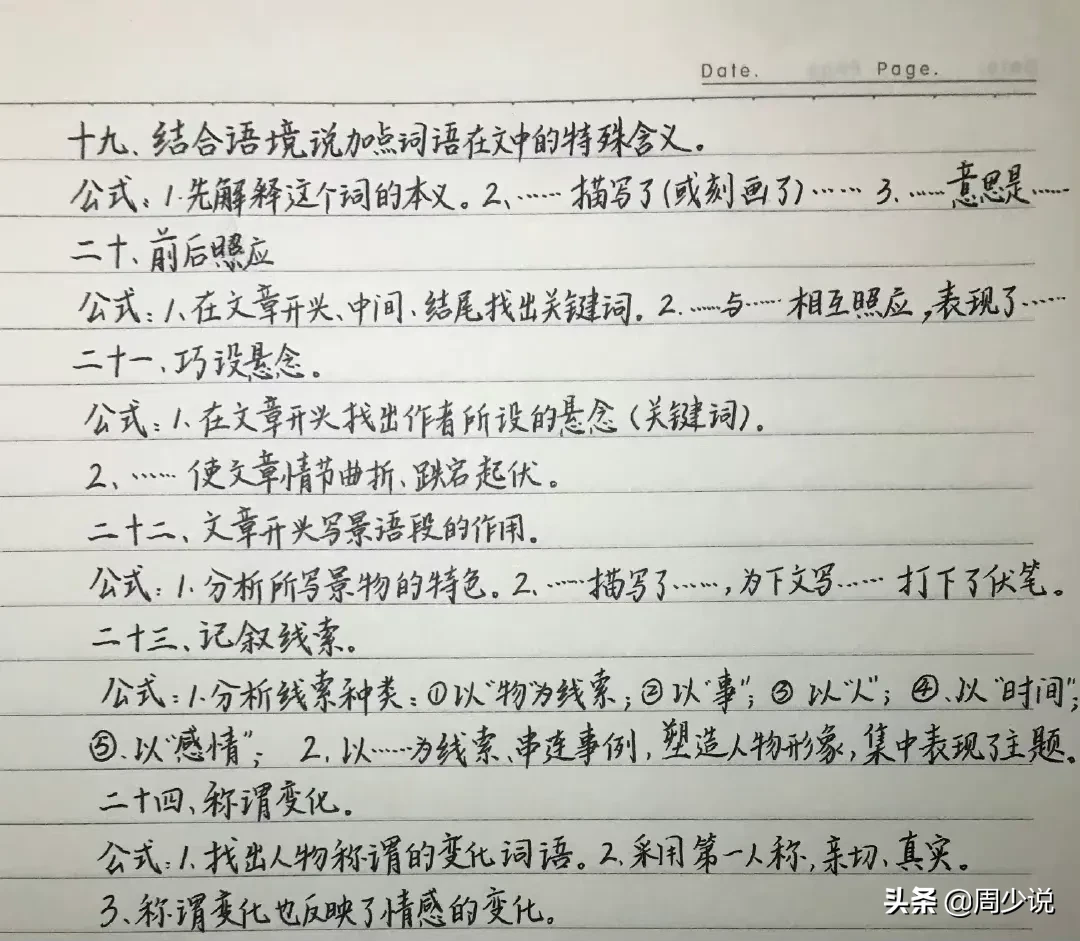 Date. Page.
十九、结合语境说加点词语在文中的特殊含义。
公式：1.先解释这个词的本义。2、……描写了(或刻画了)…… 3、……意思是……
二十、前后照应
公式：1、在文章开头、中间、结尾找出关键词。2.……与……相互照应，表现了……
二十一、巧设悬念。
公式：1、在文章开头找出作者所设的悬念(关键词)。
2、……使文章情节曲折、跌宕起伏。
二十二、文章开头写景语段的作用。
公式：1.分析所写景物的特色。2、……描写了……，为下文写……打下了伏笔。
二十三、记叙线索。
公式：1.分析线索种类：①以“物”为线索；②以“事”；③以“人”；④.以“时间”；
⑤.以“感情”； 2、以……为线索、串连事例，塑造人物形象，集中表现了主题。
二十四、称谓变化。
公式：1、找出人物称谓的变化词语。2、采用第一人称，亲切、真实。
3、称谓变化也反映了情感的变化。
头条 @周少说